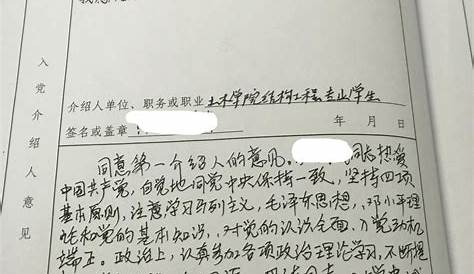 入党介绍人意见
介绍人单位、职务或职业 土木学院结构工程专业学生
签名或盖章 年 月 日
同意第一介绍人的意见。 同志热爱
中国共产党，自觉地同党中央保持一致，坚持四项
基本原则，注意学习马列主义，毛泽东思想，邓小平理
论和党的基本知识，对党的认识全面、入党动机
端正。政治上，认真参加各项政治理论学习，不断提